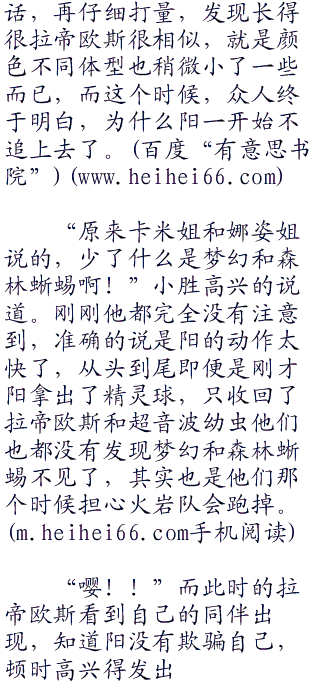 话，再仔细打量，发现长得
很拉帝欧斯很相似，就是颜
色不同体型也稍微小了一些
而已，而这个时候，众人终
于明白，为什么阳一开始不
追上去了。(百度“有意思书
院”)(www.heihei66.com)
“原来卡米姐和娜姿姐
说的，少了什么是梦幻和森
林蜥蜴啊！”小胜高兴的说
道。刚刚他都完全没有注意
到，准确的说是阳的动作太
快了，从头到尾即便是刚才
阳拿出了精灵球，只收回了
拉帝欧斯和超音波幼虫他们
也都没有发现梦幻和森林蜥
蜴不见了，其实也是他们那
个时候担心火岩队会跑掉。
(m.heihei66.com手机阅读)
“嘤！！”而此时的拉
帝欧斯看到自己的同伴出
现，知道阳没有欺骗自己，
顿时高兴得发出